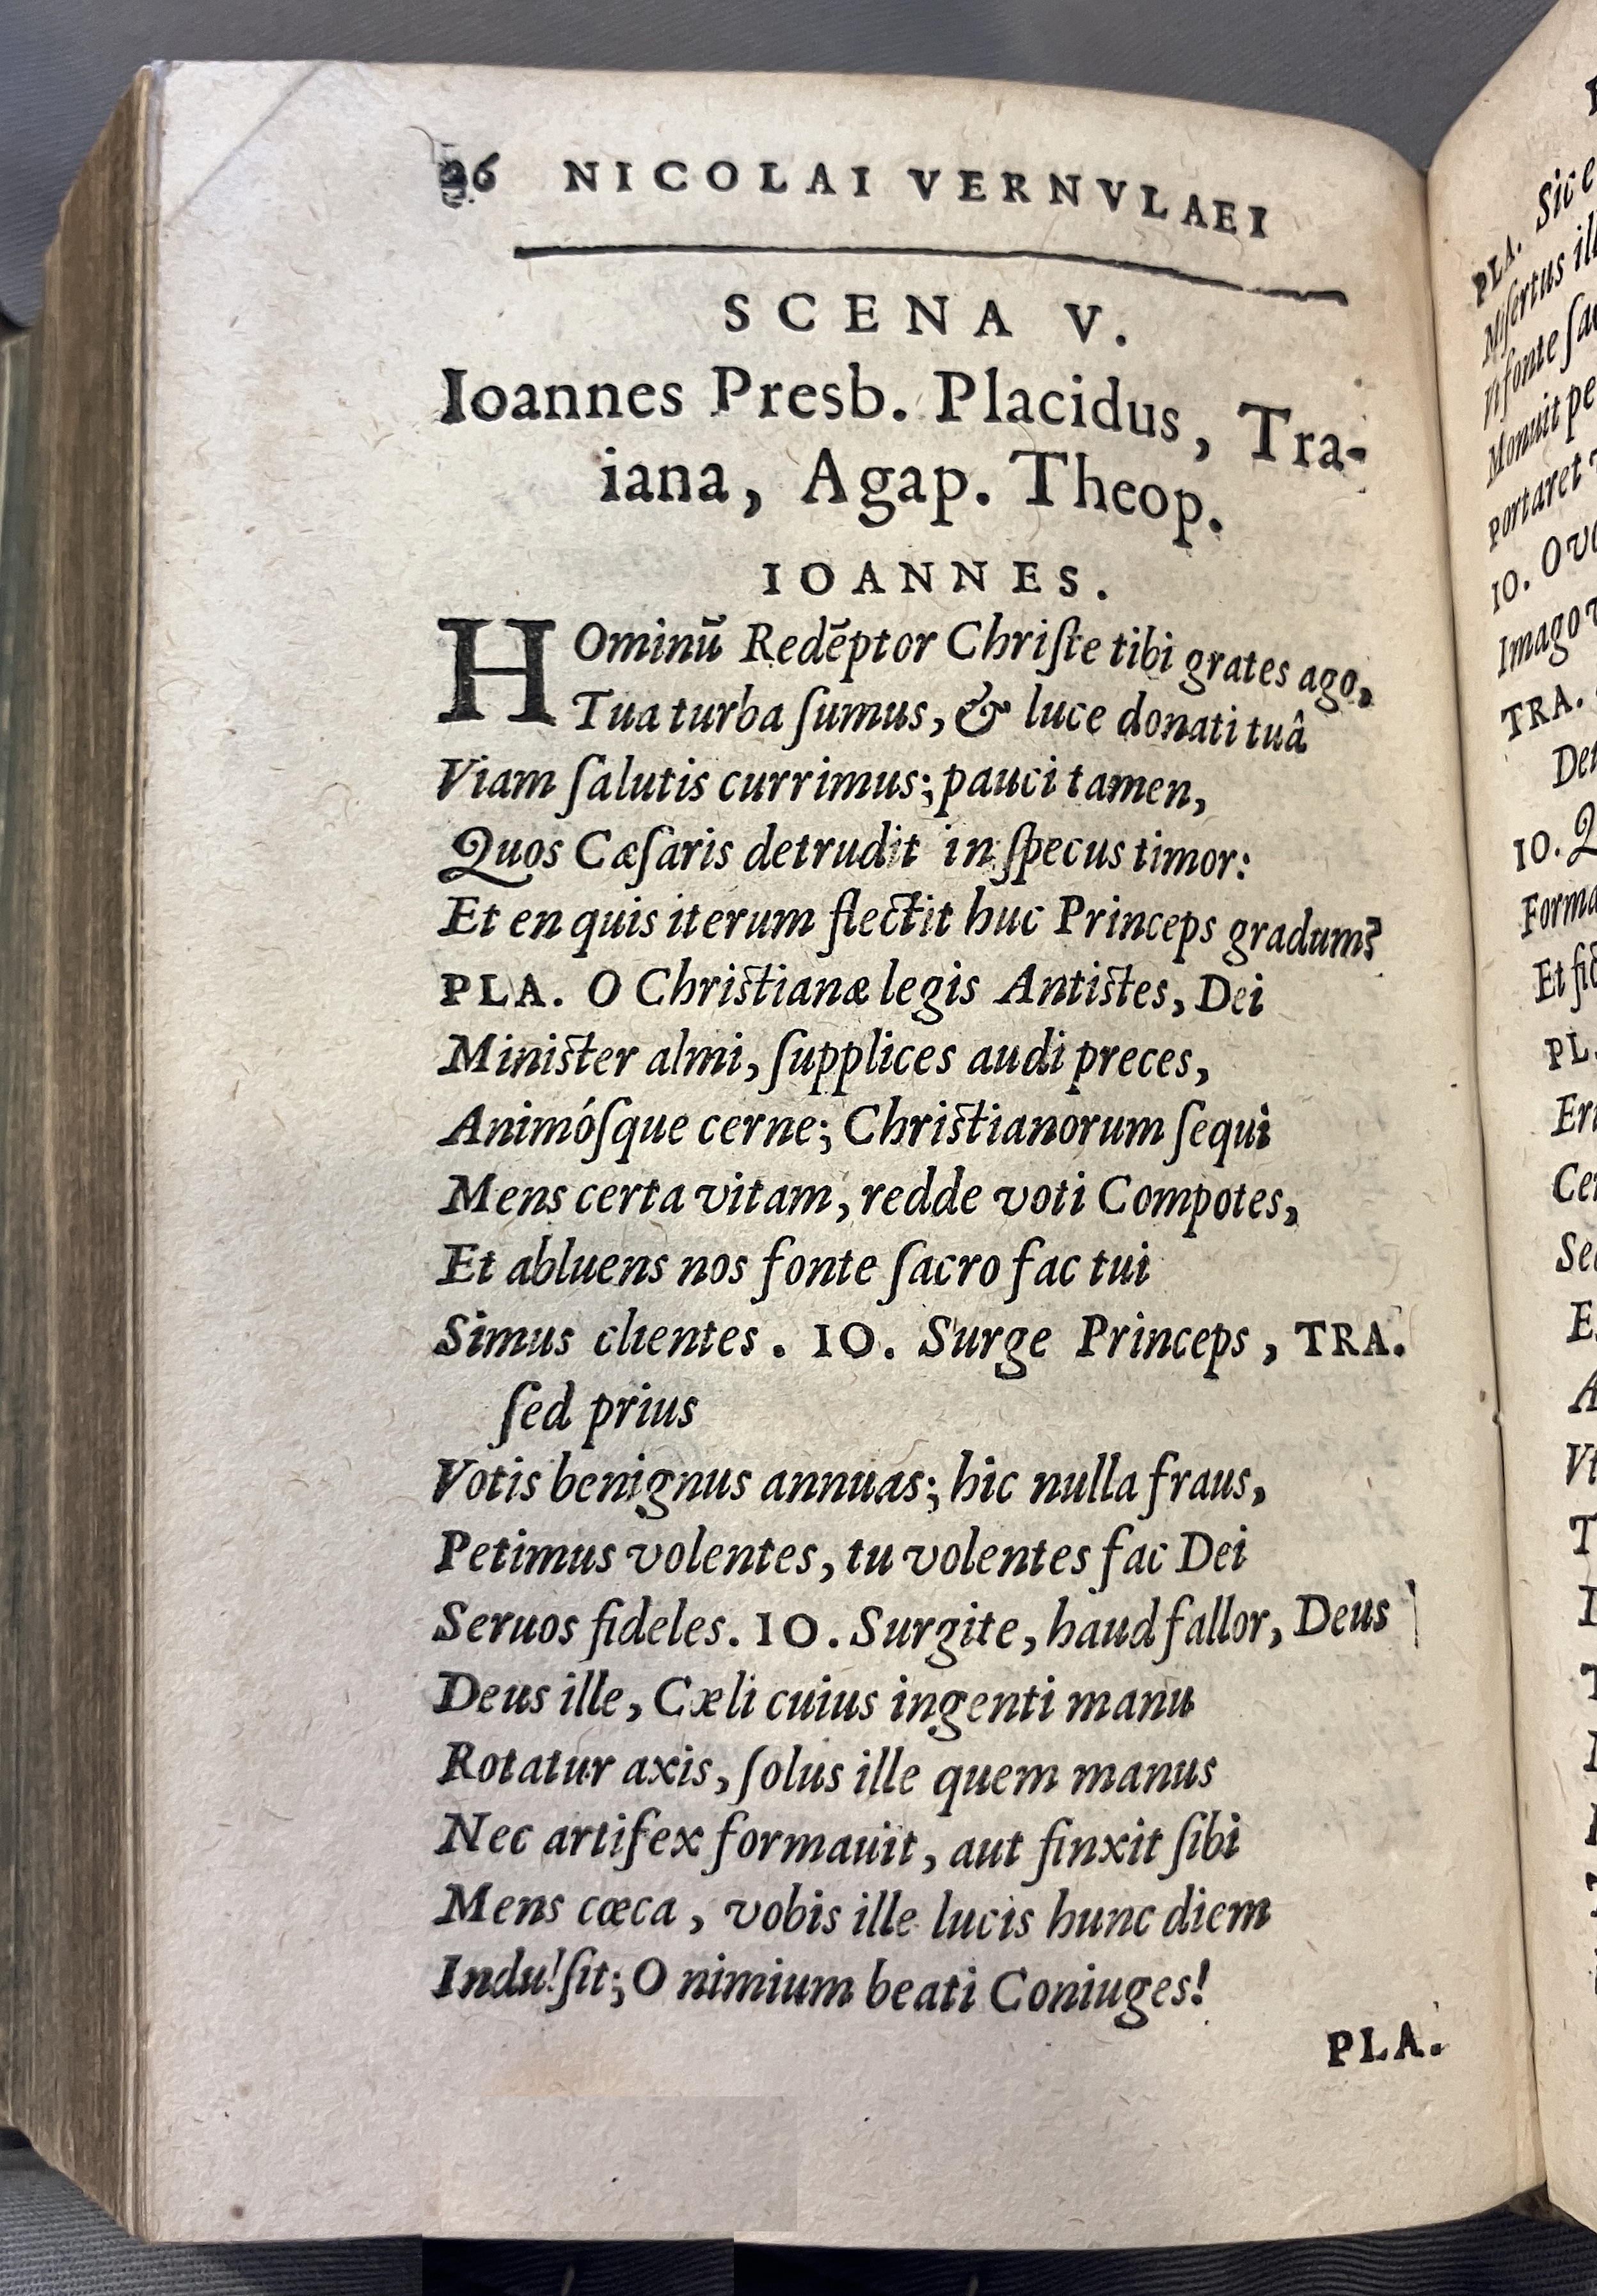 26 NICOLAI VERNVLAEI
SCENA V.
Ioannes Presb. Placidus, Tra-
iana, Agap. Theop.
IOANNES.
HOminū Redēptor Chriſte tibi grates ago,
Tua turba ſumus, & luce donati tuâ
Viam ſalutis currimus; pauci tamen,
Quos Cæſaris detrudit in ſpecus timor:
Et en quis iterum flectit huc Princeps gradum?
PLA. O Chriſtianæ legis Antiſtes, Dei
Miniſter almi, ſupplices audi preces,
Animóſque cerne; Chriſtianorum ſequi
Mens certa vitam, redde voti Compotes,
Et abluens nos fonte ſacro fac tui
Simus clientes. IO. Surge Princeps, TRA.
ſed prius
Votis benignus annuas; hic nulla fraus,
Petimus volentes, tu volentes fac Dei
Seruos fideles. IO. Surgite, haud fallor, Deus
Deus ille, Cæli cuius ingenti manu
Rotatur axis, ſolus ille quem manus
Nec artifex formauit, aut finxit ſibi
Mens cæca, vobis ille lucis hunc diem
Indulſit; O nimium beati Coniuges!
PLA.
PLA. Sic
Miſertus
fonte
Monuit
portaret
IO.
Imago
TRA.
IO.
Et